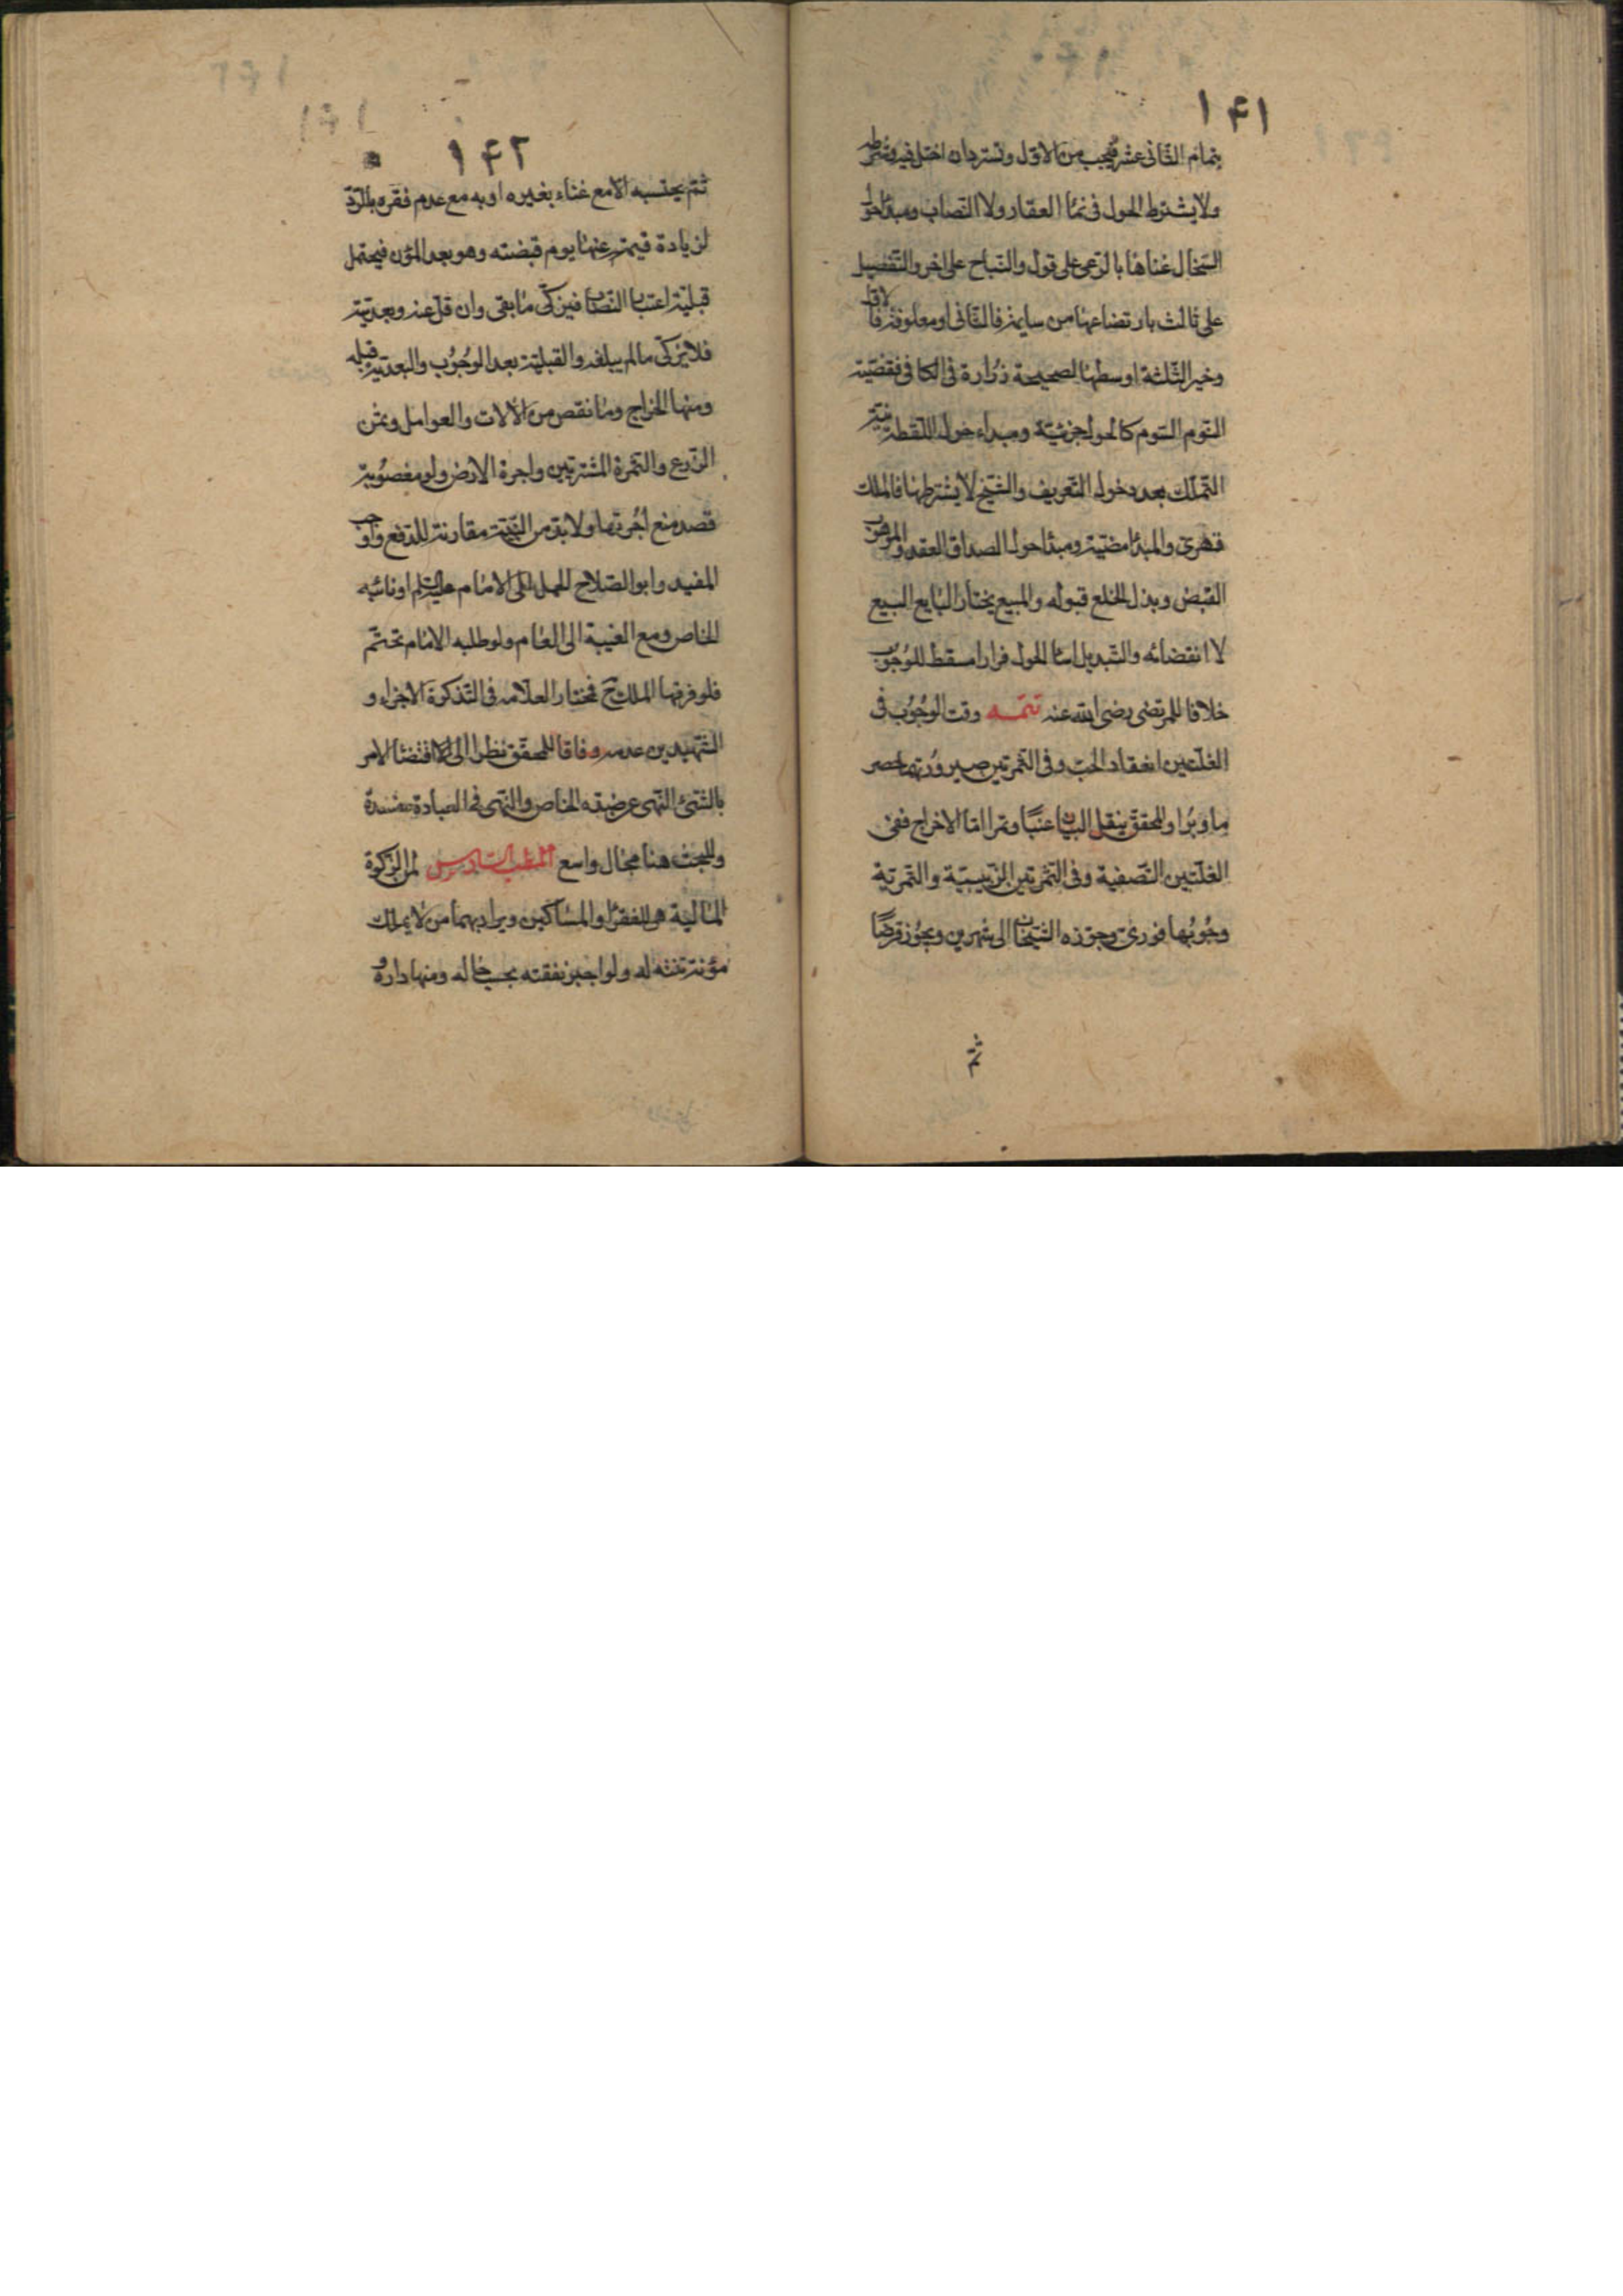 ١۴١
بتمام الثانی عشر فیجب من الاول وتسترد ان اختل فیه
ولا یشترط الحول فی نماء العقار ولا النصاب ومبدأ حول
السخال غناها بالرعی علی قول والنتاج علی اخر والتفصیل
علی ثالث بارتضاعها من سایمة فالثانی او معلوفة فالاول
وخیر الثلثة اوسطها لصحیحة زرارة فی الکافی فقضیة
السوم السوم کالحول جزئیة ومبداء حول اللقطة نیة
التملک بعد حول التعریف والشیخ لا یشترطها فالملک
قهری والمبدأ مضیّه ومبدأ حول الصداق العقد والموهوب
القبض وبذل الخلع قبوله والمبیع بخیار البایع البیع
لا انقضائه والتبدیل اثناء الحول فرارا مسقط للوجوب
خلافا للمرتضی رضی الله عنه تتمه وقت الوجوب فی
الغلتین انعقاد الحب وفی الثمرتین صیرورتهما حصر
ما وبرا وللمحقق بنقل البیان عنبًا وتمرا اما الاخراج ففی
الغلتین التصفیة وفی الثمرتین الزبیبیة والتمریة
وجوبها فوری وجوزه الشیخان الی شهرین ویجوز قرضًا
ثم
١۴٢
ثم یحتسبه الا مع غناء بغیره او به مع عدم فقره بالرد
لزیادة قیمته عنها یوم قبضته وهو بعد المؤن فیحتمل
قبلیّة اعتبار النصاب فیزکی ما بقی وان قل عنه وبعدیته
فلا یزکی مالم یبلغه والقبلیة بعد الوجوب والبعدیة قبله
ومنها الخراج وما نقص من الالات والعوامل وثمن
الزرع والثمرة المشتریین واجرة الارض ولو مغصوبة
قصد منع اجرتها ولا بد من النیة مقارنة للدفع واوجب
المفید وابو الصلاح الحمل الی الامام علیه السلام او نائبه
الخاص ومع الغیبة الی العام ولو طلبه الامام تحتم
فلو فرقها المالک ح فمختار العلامه فی التذکرة الاجزاء و
الشهیدین عدمه وفاقا للمحقق نظرا الی اقتضاء الامر
بالشیئ النهی عن ضده الخاص والنهی فی العبادة مفسدة
وللبحث هنا مجال واسع المطلب السادس لمن الزکوة
المالیة هی للفقراء والمساکین ویراد بهما من لا یملک
مؤنة سنته له ولواجبی نفقته بحسب حاله ومنها داره و